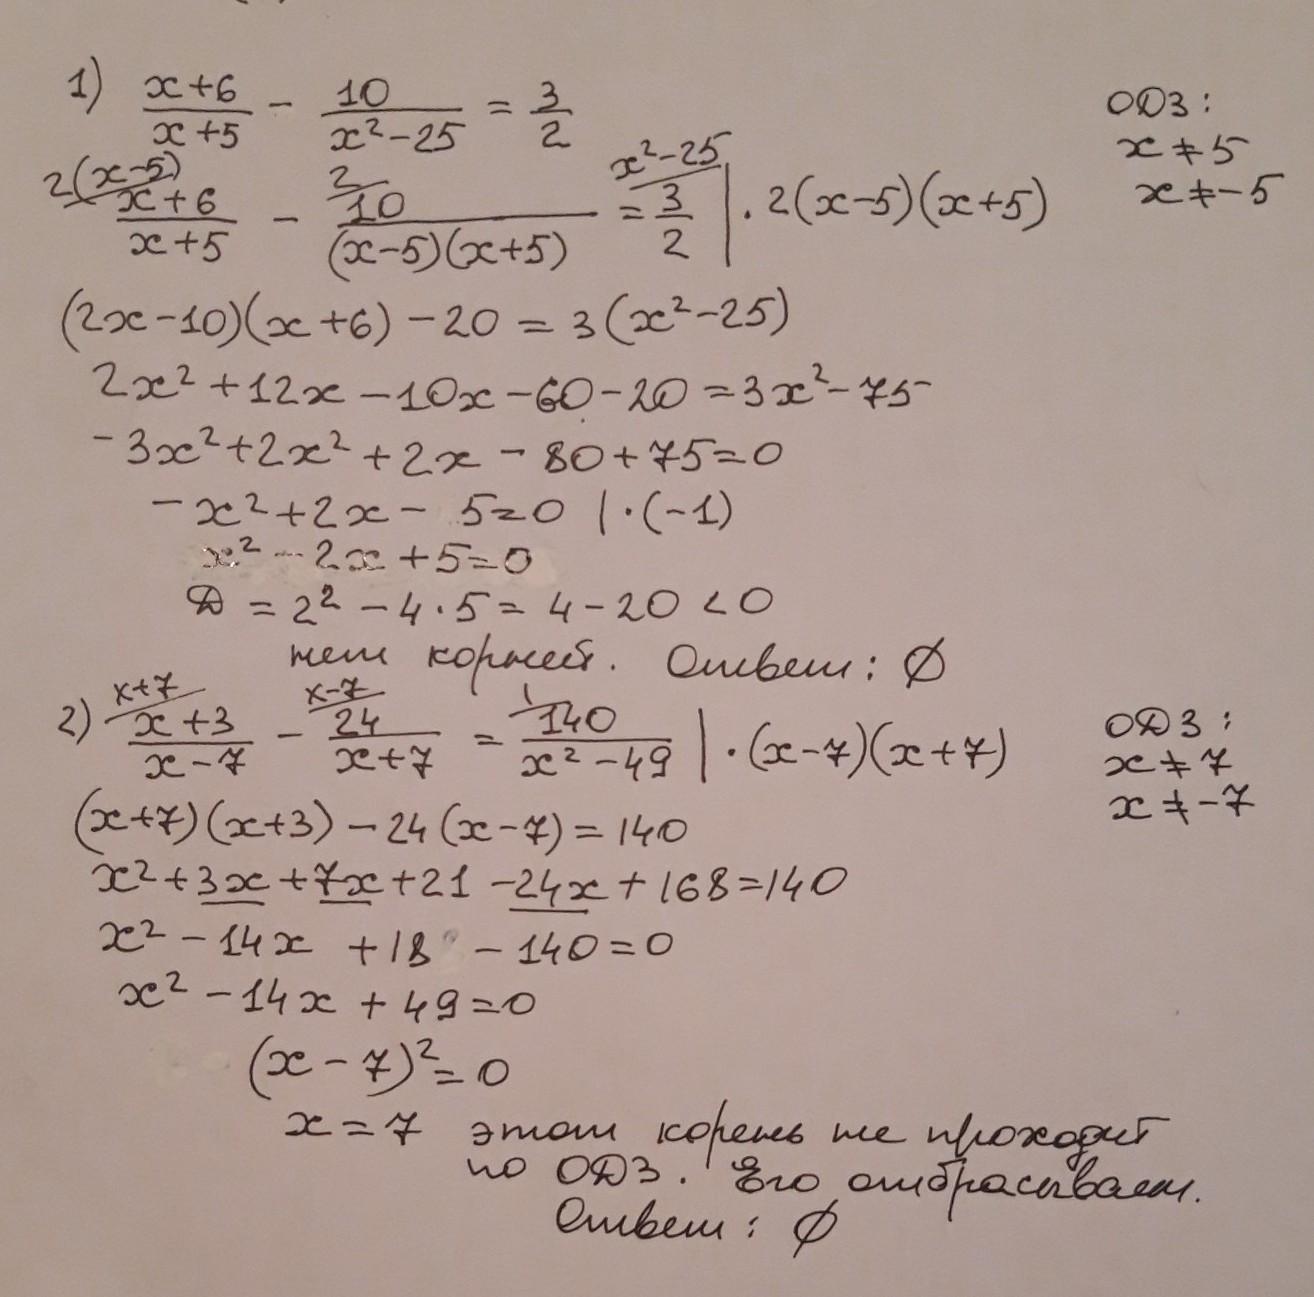 1) (x+6)/(x+5) - 10/(x²-25) = 3/2
ОДЗ:
x ≠ 5
x ≠ -5
2(x-5) 2 x²-25
(x+6)/(x+5) - 10/((x-5)(x+5)) = 3/2 | · 2(x-5)(x+5)
(2x-10)(x+6) - 20 = 3(x²-25)
2x² + 12x - 10x - 60 - 20 = 3x² - 75
-3x² + 2x² + 2x - 80 + 75 = 0
-x² + 2x - 5 = 0 | · (-1)
x² - 2x + 5 = 0
D = 2² - 4 · 5 = 4 - 20 < 0
нет корней. Ответ: ∅
x+7 x-7 1
2) (x+3)/(x-7) - 24/(x+7) = 140/(x²-49) | · (x-7)(x+7)
ОДЗ:
x ≠ 7
x ≠ -7
(x+7)(x+3) - 24(x-7) = 140
x² + 3x + 7x + 21 - 24x + 168 = 140
x² - 14x + 18 - 140 = 0
x² - 14x + 49 = 0
(x-7)² = 0
x = 7 этот корень не проходит
по ОДЗ. Его отбрасываем.
Ответ: ∅